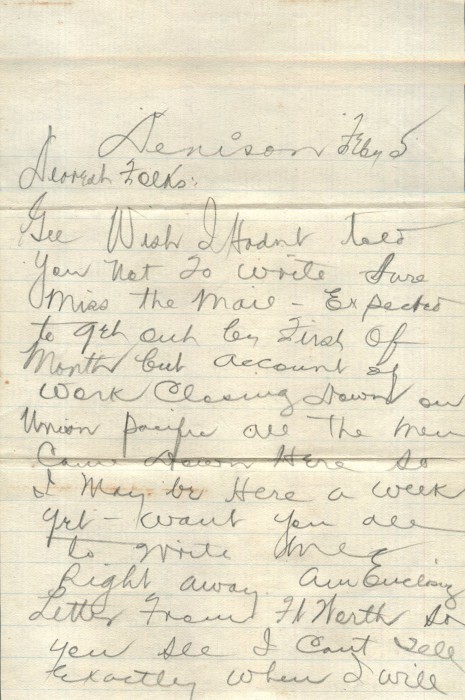 Denison Feby 5
Dearest Folks:
Gee Wish I Hadnt told
You Not To write Sure
Miss the Mail - Expected
to get out by First Of
Month but account of
Work Closing Down on
Union pacific all The Men
Came Down Here so
I May be Here a week
yet - want you all
to write me
Right away. Am Enclosing
Letter From Ft Worth So
you see I Cant Tell
Exactly When I will